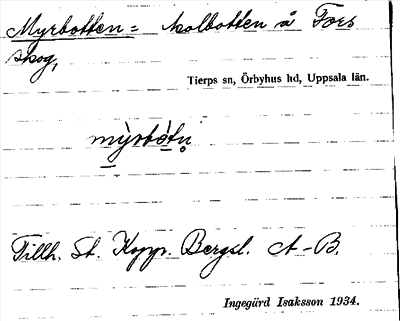 Myrbotten = kolbotten å Fors
skog,
Tierps sn, Örbyhus hd, Uppsala län.
mỳrbòtn̥
Tillh. St. Kopp. Bergsl. A-B.
Ingegärd Isaksson 1934.